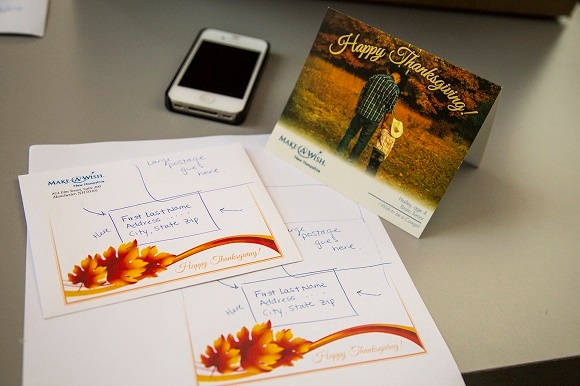 Happy Thanksgiving!
MAKE-A-WISH
New Hampshire
I wish to be a Cowgirl
MAKE-A-WISH
New Hampshire
Large
postage
goes
here
First Last Name
Address
City, State Zip
Here
Happy Thanksgiving!
Large
postage
goes
here
First Last Name
Address
City, State Zip
Here
Happy Thanksgiving!